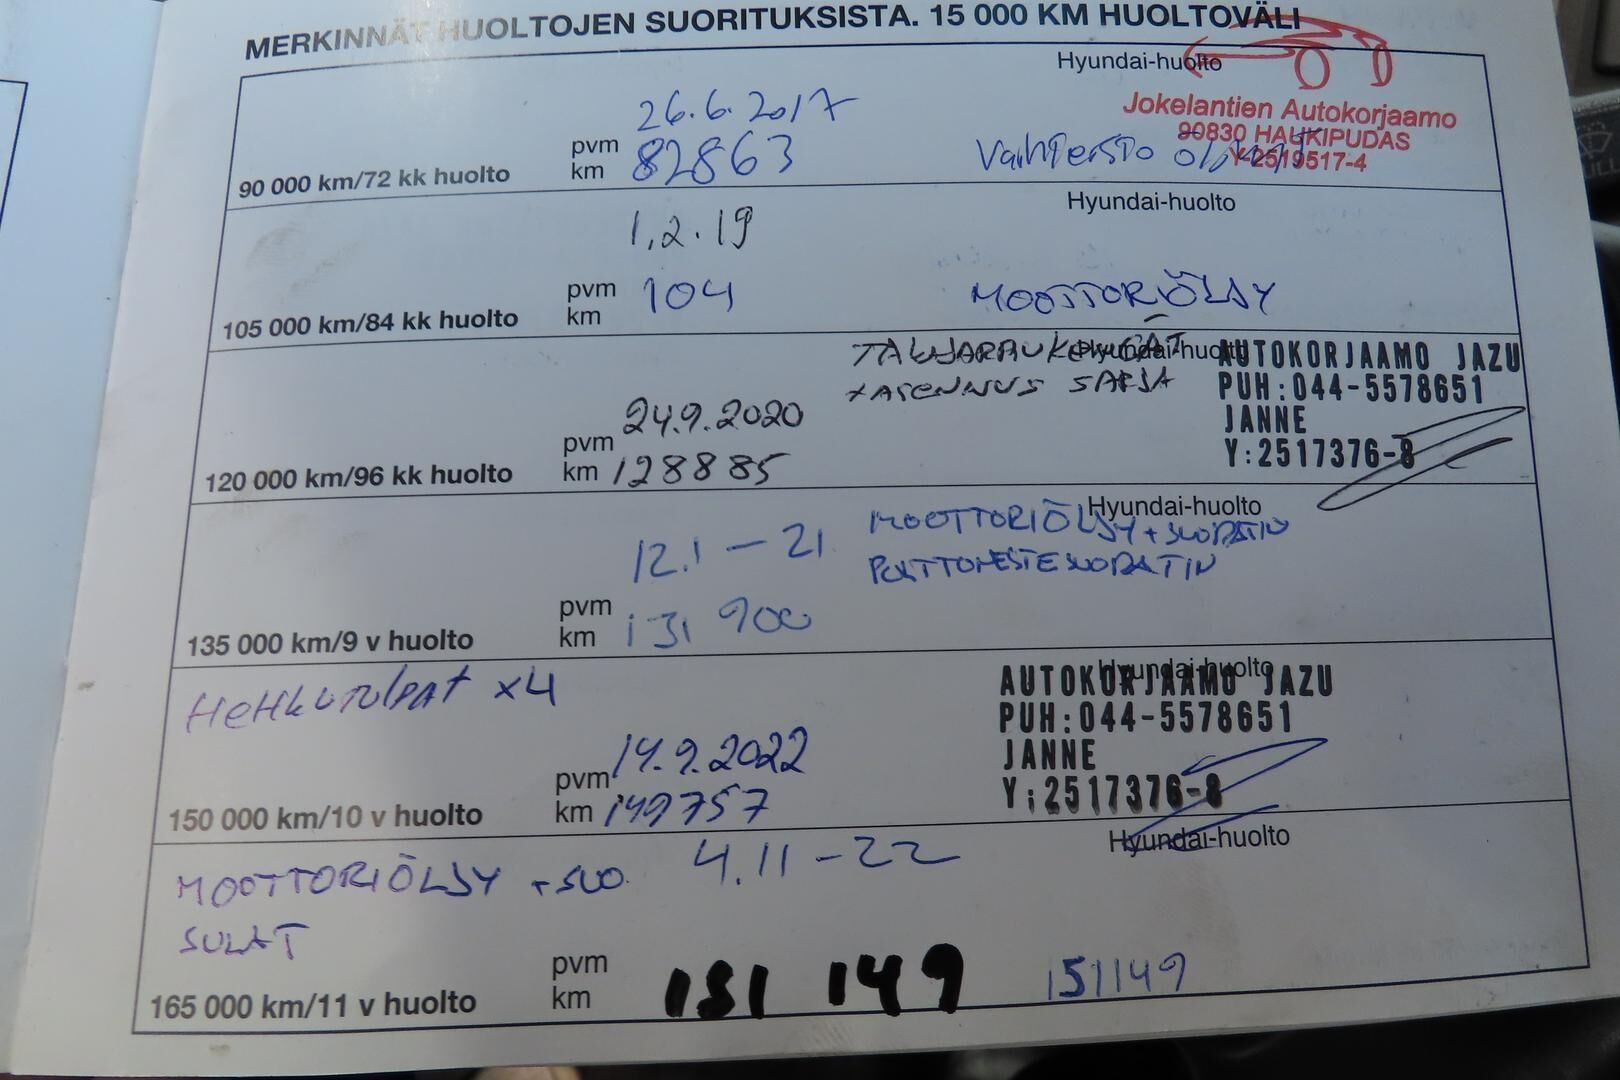 MERKINNÄT HUOLTOJEN SUORITUKSISTA. 15 000 KM HUOLTOVÄLI
Hyundai-huolto
Jokelantien Autokorjaamo
90830 HAUKIPUDAS
Y-2519517-4
26.6.2017
pvm
km 82863
90 000 km/72 kk huolto
Hyundai-huolto
1.2.19
pvm
km 104
MOOTTORIÖLJY
105 000 km/84 kk huolto
Hyundai-huolto
TAKAJARRUKENGÄT
+ ASENNUS SARJA
AUTOKORJAAMO JAZU
PUH:044-5578651
JANNE
Y:2517376-8
pvm 24.9.2020
km 128885
120 000 km/96 kk huolto
Hyundai-huolto
MOOTTORIÖLJY + SUODATIN
POLTTONESTESUODATIN
12.1 - 21
pvm
km 131 900
135 000 km/9 v huolto
Hyundai-huolto
HeHKuTulPAT x4
AUTOKORJAAMO JAZU
PUH:044-5578651
JANNE
Y:2517376-8
pvm 14.9.2022
km 149757
150 000 km/10 v huolto
Hyundai-huolto
MOOTTORIÖLJY + SUO. 4.11 - 22
SULAT
pvm
km 151 149 151149
165 000 km/11 v huolto